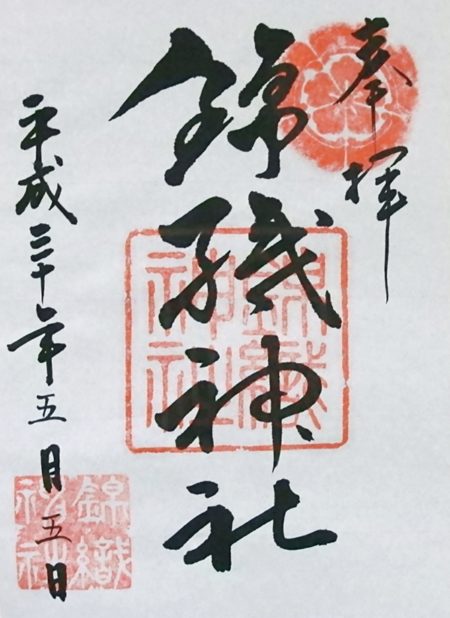 奉拝
錦織神社
平成三十年五月五日
錦織
神社
錦織
神社